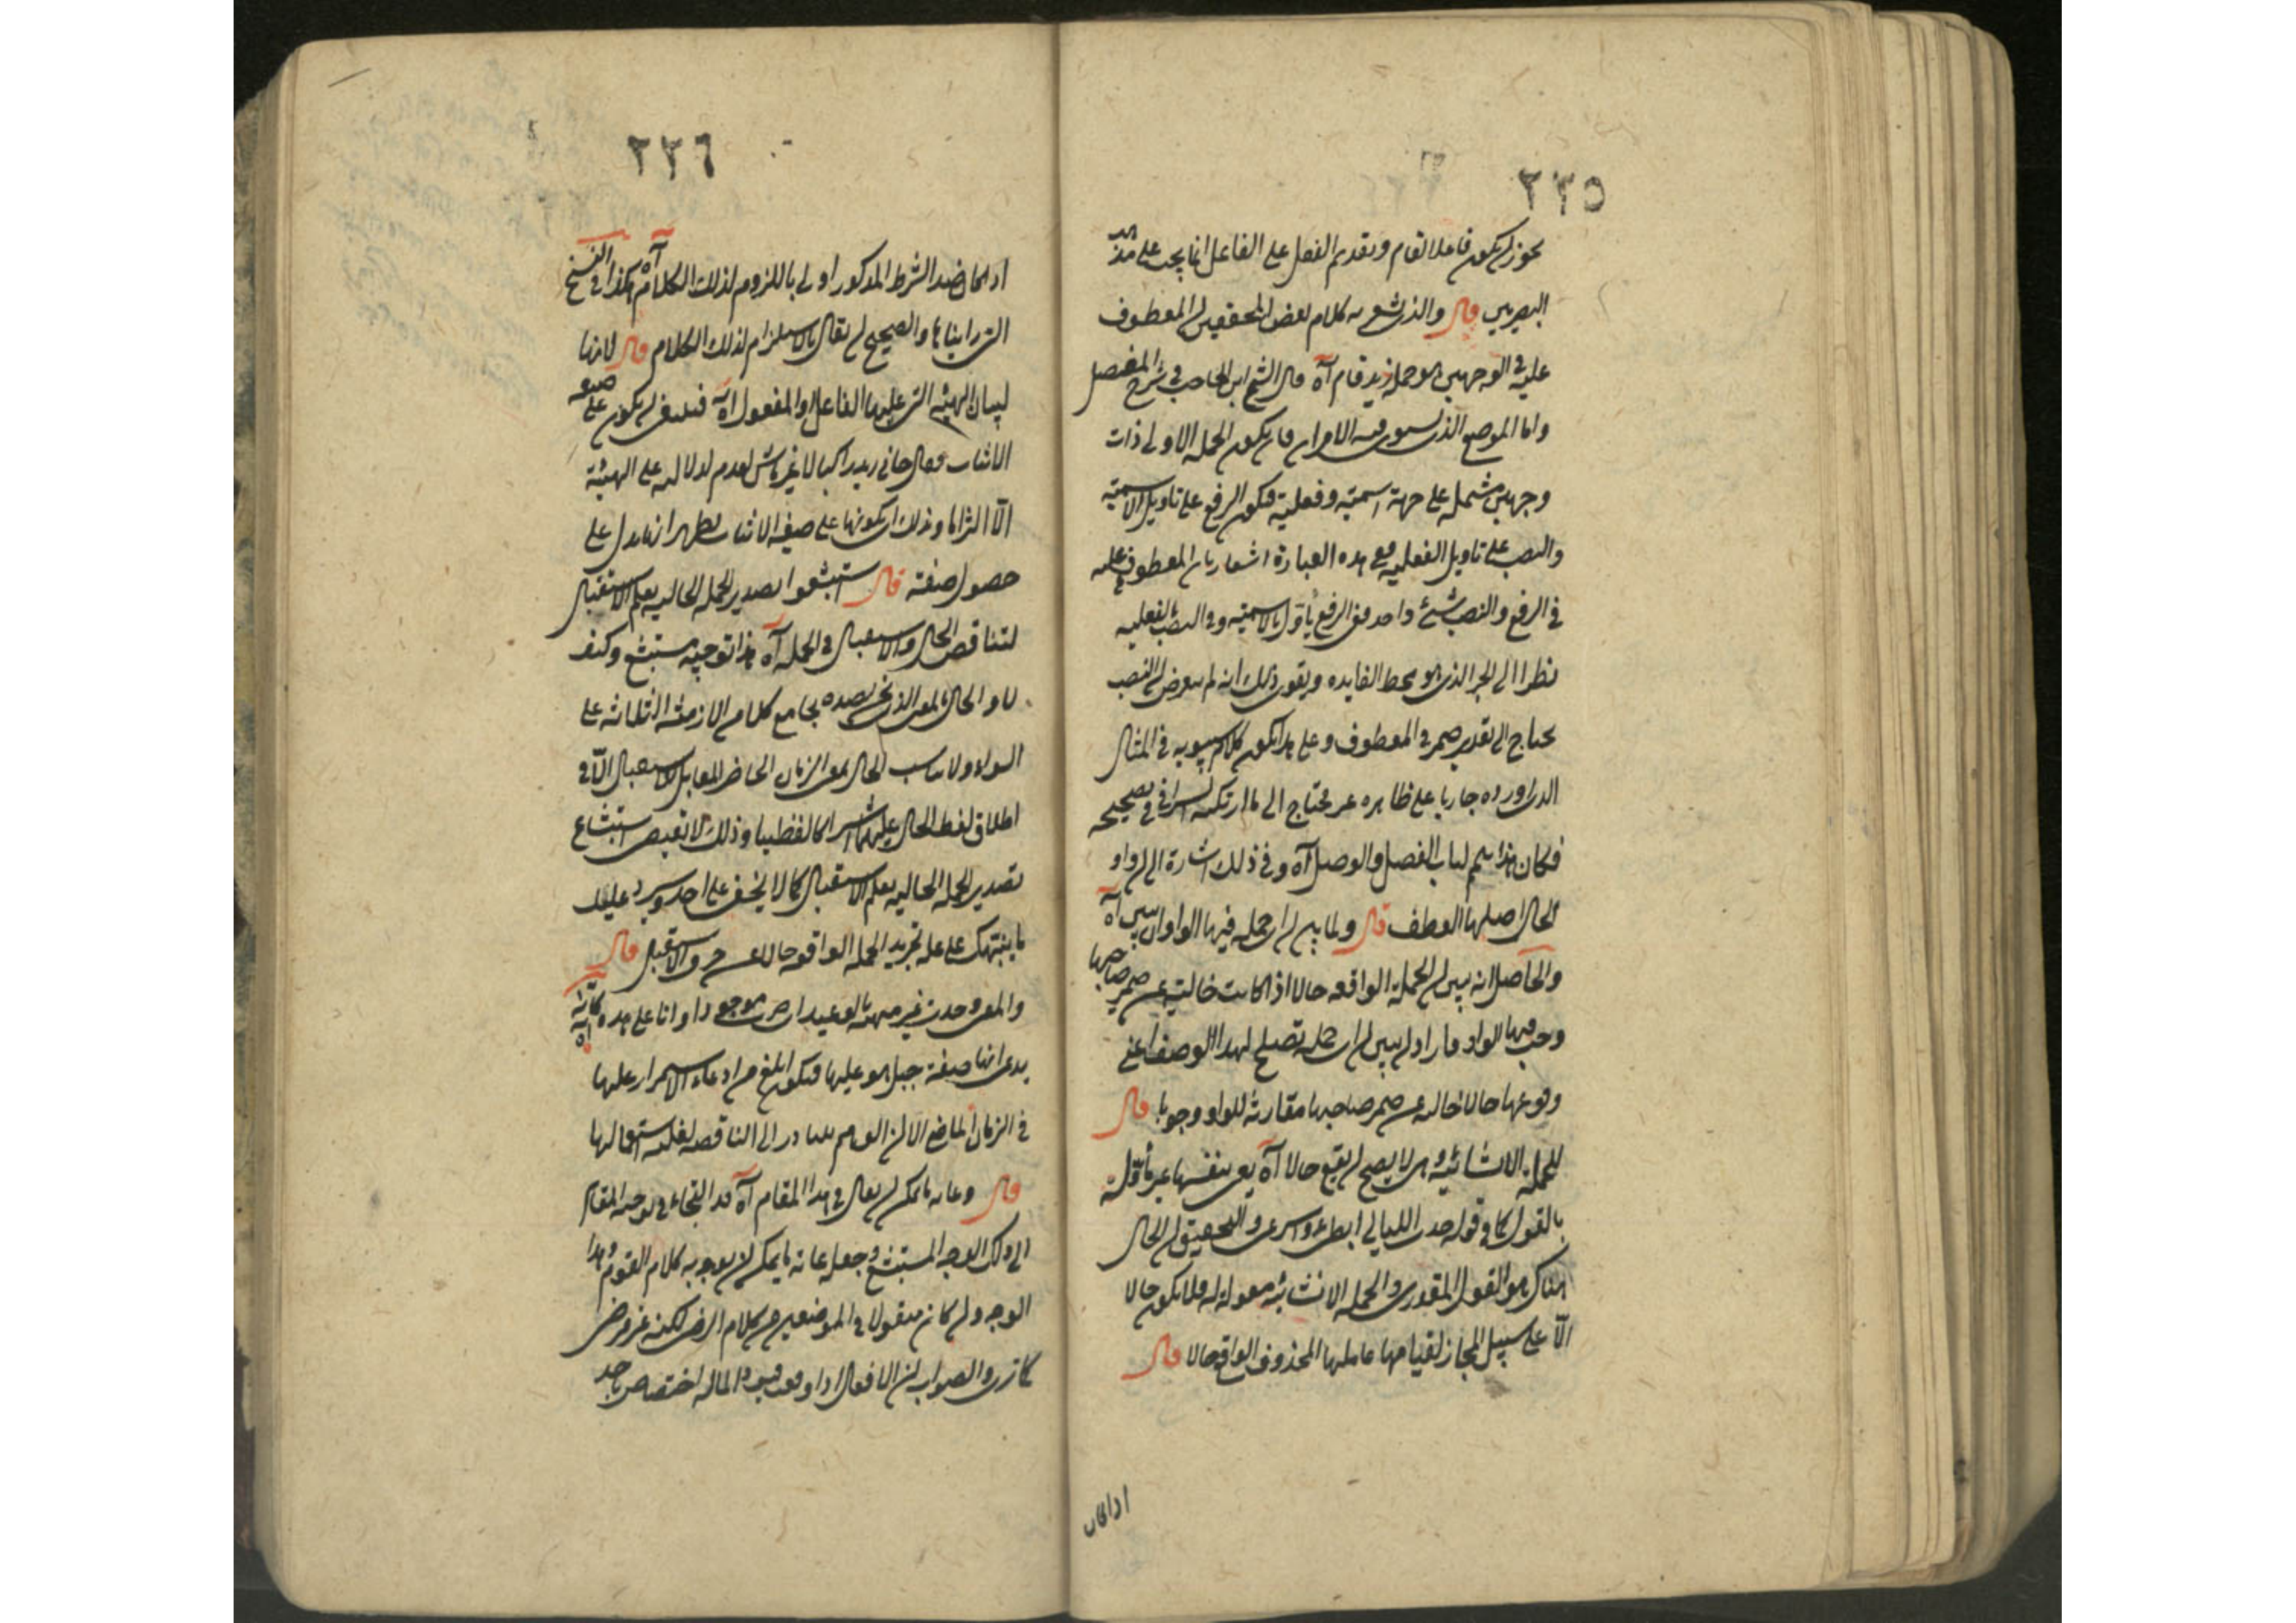 ٢٢٥
يجوز ان يكون فاعلا لقام وتقديم الفعل على الفاعل انما يجب على مذهب
البصريين قال والذي يشعر به كلام بعض المحققين ان المعطوف
عليه في الوجهين هو جملة زيد قام آه قال الشيخ ابن الحاجب في شرح المفصل
واما الموضع الذي يستوي فيه الامران فان يكون الجملة الاولى ذات
وجهين مشتملة على جهة اسمية وفعلية فيكون الرفع على تاويل الاسمية
والنصب على تاويل الفعلية ففي هذه العبارة اشعار بان المعطوف عليه
في الرفع والنصب شئ واحد ففي الرفع يأول بالاسمية وفي النصب بالفعلية
نظرا الى الخبر الذي هو محط الفايدة ويقوي ذلك انه لم يتعرض ان النصب
يحتاج الى تقدير ضمير في المعطوف وعلى هذا يكون كلام سيبويه في المثال
الذي اورده جاريا على ظاهره غير محتاج الى ما ارتكبه السيرافي في تصحيحه
فكان هذا تتميم لباب الفصل والوصل آه وفي ذلك اشارة الى ان واو
الحال اصلها العطف قال ولما بين ان اي جملة فيها الواو ان يبين آه
والحاصل انه بين ان الجملة الواقعة حالا اذا كانت خالية عن ضمير صاحبها
وجب فيها الواو فاراد ان يبين ان اي جملة تصلح لهذا الوصف اعني
وقوعها حالا خالية عن ضمير صاحبها مقارنة للواو وجوبا قال
الجملة الانشائية وهي لا يصح ان يقع حالا آه يعني بنفسها غير مأولة
بالقول كما في قوله جذب الليالي ابطئي واسرعي والتحقيق ان الحال
هناك هو القول المقدر والجملة الانشائية معمولة له فلا يكون حالا
الا على سبيل المجاز لقيامها مقام عاملها المحذوف الواقع حالا قال
اذا كان
٢٢٦
اذا كان ضد الشرط المذكور اولى باللزوم لذلك الكلام آه هكذا في النسخ
التي رايناها والصحيح ان يقال بالاستلزام لذلك الكلام قال لانها
لبيان الهيئة التي عليها الفاعل او المفعول آه فينبغي ان يكون على صيغة
الاثبات فيقال جاني زيد راكبا لا غير ماش لعدم دلالته على الهيئة
الا التزاما وذلك ان يكونها على صيغة الاثبات يظهر انها يدل على
حصول صفة قال استبشعوا تصدير الجملة الحالية بعلم الاستقبال
لتناقض الحال والاستقبال في الجملة آه هذا توجيه مستبشع وكيف
لا والحال بالمعنى الذي نحن بصدده يجامع كلا من الازمنة الثلاثة على
السواء ولا يناسب الحال بمعنى الزمان الحاضر المقابل للاستقبال الا في
اطلاق لفظ الحال عليهما اشتراكا لفظيا وذلك لا يقتضي استبشاع
تصدير الجملة الحالية بعلم الاستقبال كما لا يخفى على احد وسيرد عليك
ما ينبهك على علة تجريد الجملة الواقعة حالا عن حروف الاستقبال قال
والمعنى وجدت غير منهنه بالوعيد اي موجودا وانا على هذه كانه آه
يدعي انها صفة جبل هو عليها فيكون ابلغ من ادعاء الاستمرار عليها
في الزمان الماضي الا ان الوهم يتبادر الى الناقصة لغلبة استعمالها
قال وغاية ما يمكن ان يقال في هذا المقام آه قد التجاء في توجيه المقال
الى ذلك الوجه المستبشع وجعله غاية ما يمكن لان يوجه به كلام القوم وهذا
الوجه وان كان منقولا في الموضعين من كلام الرضي لكنه غير مرضي
كما ترى والصواب ان الافعال اذا وقعت قيودا لما له اختصاص باحد